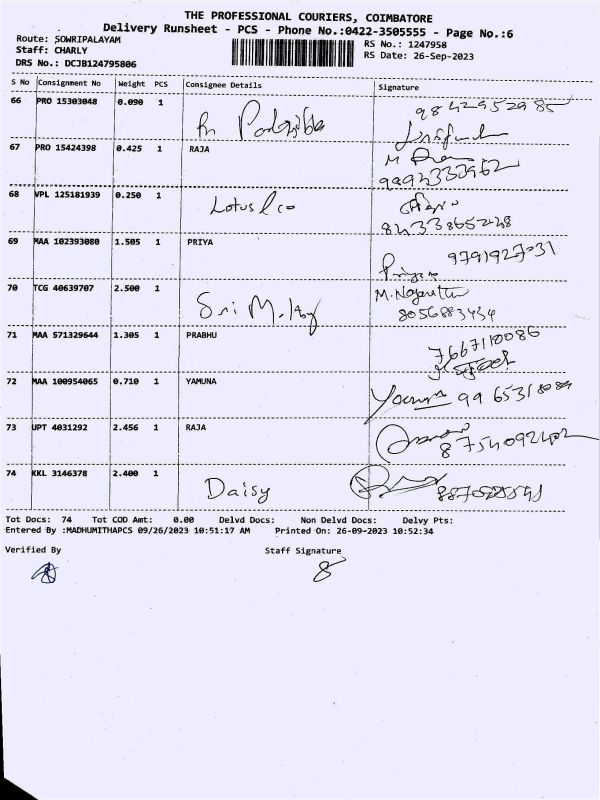 THE PROFESSIONAL COURIERS, COIMBATORE
Delivery Runsheet - PCS - Phone No.:0422-3505555 - Page No.:6
Route: SOWRIPALAYAM
Staff: CHARLY
DRS No.: DCJB124795806
RS No.: 1247958
RS Date: 26-Sep-2023
S No Consignment No Weight PCS Consignee Details Signature
66 PRO 15303048 0.090 1
9842952985
67 PRO 15424398 0.425 1 RAJA
68 VPL 125181939 0.250 1 Lotus
69 MAA 102393080 1.505 1 PRIYA 9791927031
Priya
70 TCG 40639707 2.500 1 Sri
71 MAA 571329644 1.305 1 PRABHU 7667110086
72 MAA 100954065 0.710 1 YAMUNA
73 UPT 4031292 2.456 1 RAJA
74 KKL 3146378 2.400 1 Daisy
Tot Docs: 74 Tot COD Amt: 0.00 Delvd Docs: Non Delvd Docs: Delvy Pts:
Entered By :MADHUMITHAPCS 09/26/2023 10:51:17 AM Printed On: 26-09-2023 10:52:34
Verified By Staff Signature